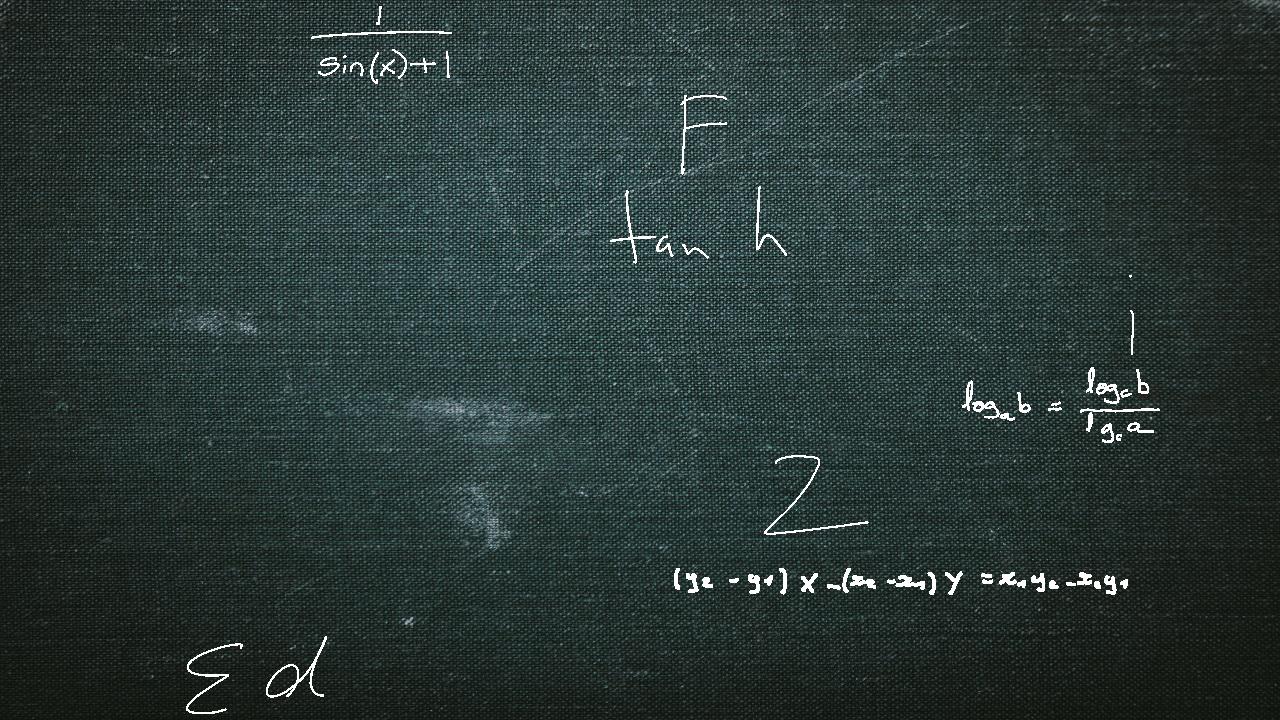 1
sin(x)+1
F
tan h
i
logₐb = log꜀b
lg꜀a
Z
(y₂ - y₁) X - (x₂ - x₁) Y = x₁y₂ - x₂y₁
Σ d